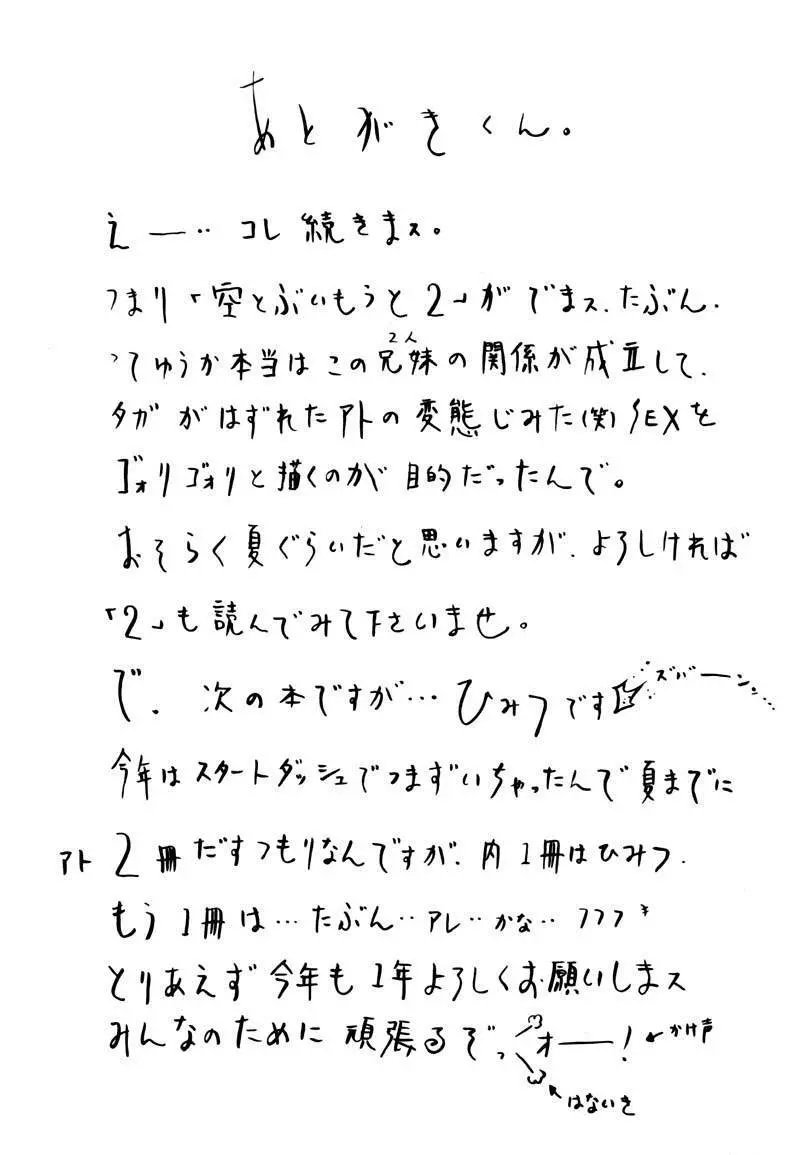 あとがきくん。
え——‥ コレ続きまス。
つまり「空とぶいもうと2」がでまス、たぶん.
ってゆうか本当はこの兄妹の関係が成立して、
2人
タガがはずれたアトの変態じみた(笑)SEXを
ゴォリゴォリと描くのが目的だったんで。
おそらく夏ぐらいだと思いますが、よろしければ
「2」も読んでみて下さいませ。
で、次の本ですが…ひみつです
ズバーン。…
今年はスタートダッシュでつまずいちゃったんで夏までに
アト2冊だすつもりなんですが、内1冊はひみつ.
もう1冊は…たぶん‥アレ‥かな‥フフフ
とりあえず今年も1年よろしくお願いしまス
みんなのために頑張るぞっオ——!
←かけ声
はないき